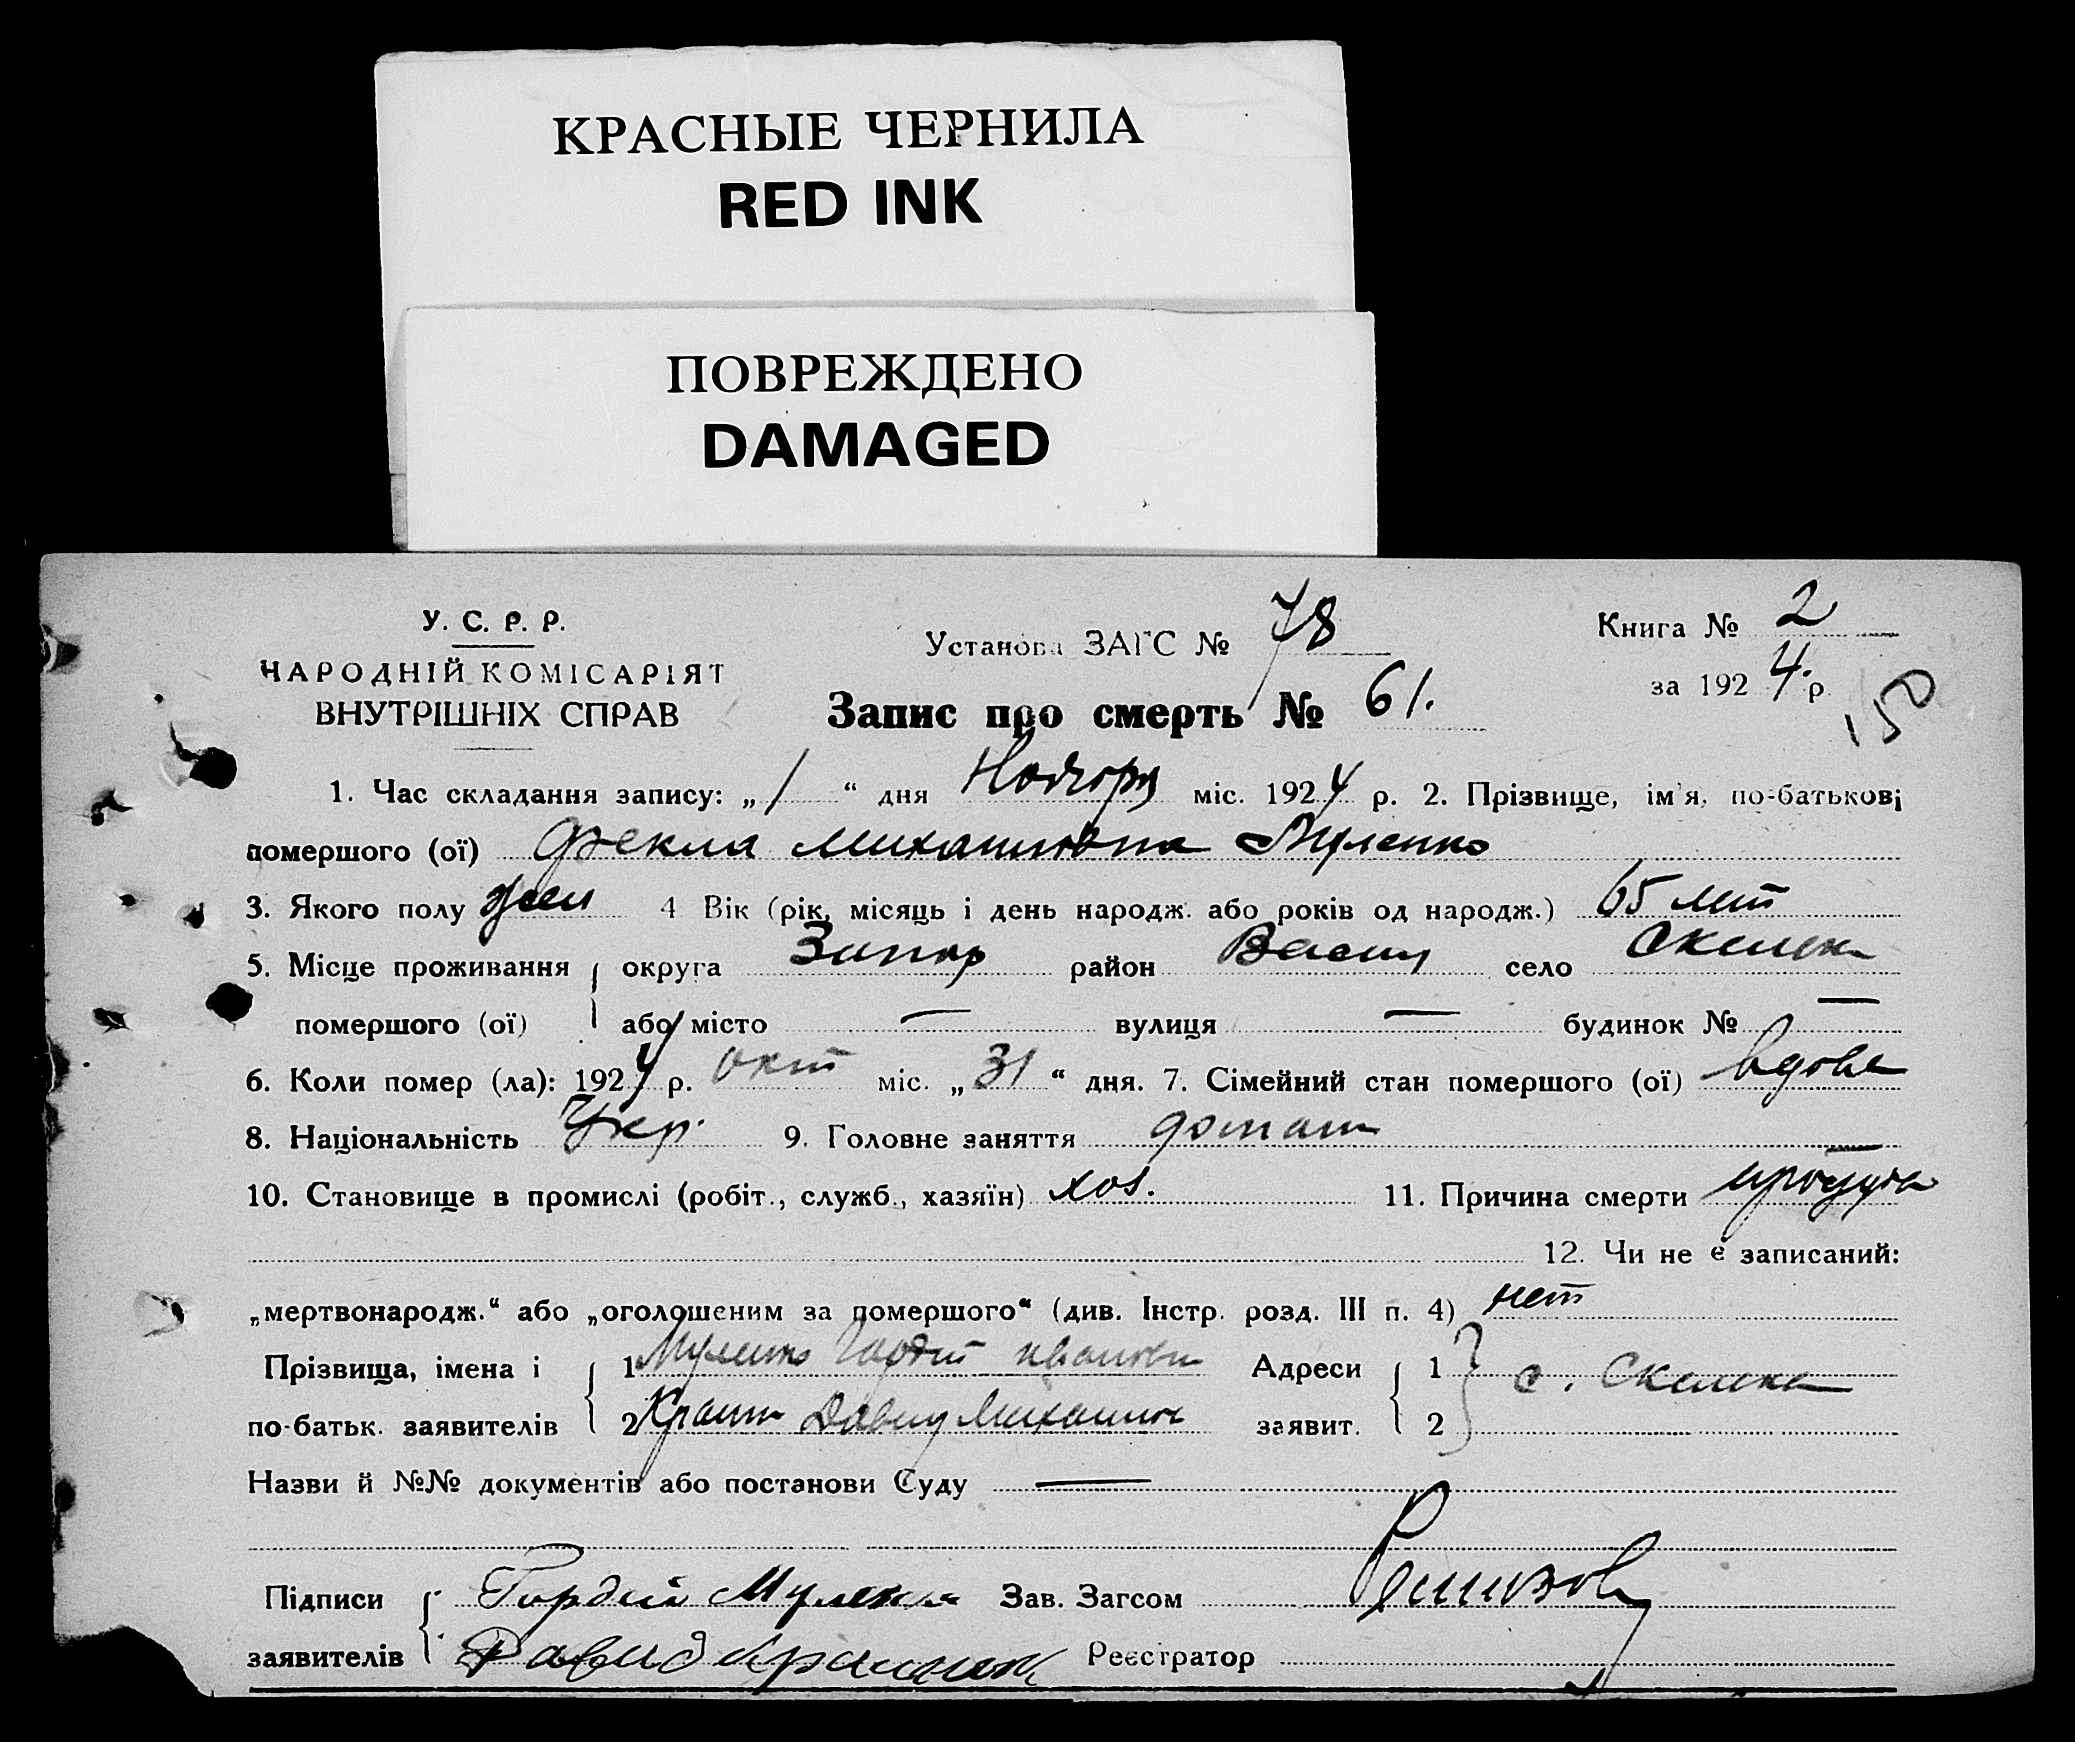 КРАСНЫЕ ЧЕРНИЛА
RED INK
ПОВРЕЖДЕНО
DAMAGED
У. С. Р. Р.
НАРОДНІЙ КОМІСАРІЯТ
ВНУТРІШНІХ СПРАВ
Установа ЗАГС № 78
Запис про смерть № 61.
Книга № 2
за 1924 р.
150
1. Час складання запису: „1“ дня Ноября міс. 1924 р. 2. Прізвище, ім'я, по-батькові
помершого (ої) Фекла Михайловна Муленко
3. Якого полу жен 4 Вік (рік, місяць і день народж. або років од народж.) 65 лет
5. Місце проживання округа Запор район Васил село Скельк
помершого (ої) або місто — вулиця — будинок № —
6. Коли помер (ла): 1924 р. окт міс. „31“ дня. 7. Сімейний стан помершого (ої) вдова
8. Національність Укр. 9. Головне заняття домаш
10. Становище в промислі (робіт., служб., хазяїн) хоз. 11. Причина смерти простуда
12. Чи не є записаний:
„мертвонародж.“ або „оголошеним за помершого“ (див. Інстр. розд. III п. 4) нет
Прізвища, імена і 1 Муленко Гордей Иванович Адреси 1 с. Скелька
по-батьк. заявителів 2 Давид Михайлов заявит. 2
Назви й №№ документів або постанови Суду —
Підписи Гордей Муленко Зав. Загсом
заявителів Давид Реєстратор